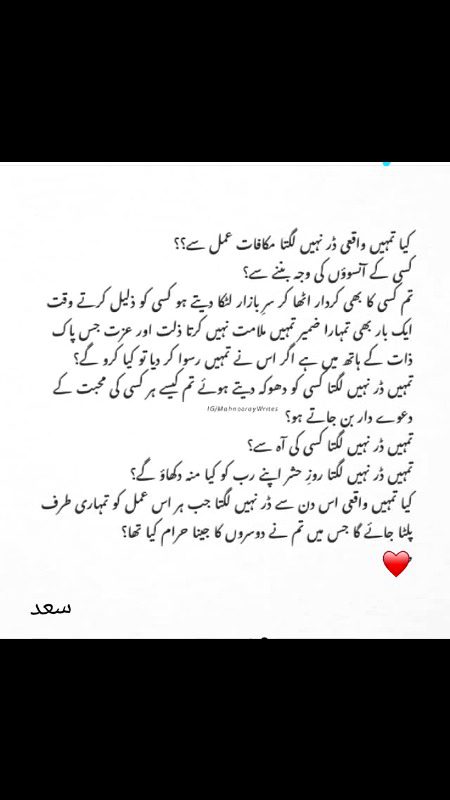 کیا تمہیں واقعی ڈر نہیں لگتا مکافات عمل سے؟؟
کسی کے آنسوؤں کی وجہ بننے سے؟
تم کسی کا بھی کردار اٹھا کر سرِ بازار لٹکا دیتے ہو کسی کو ذلیل کرتے وقت
ایک بار بھی تمہارا ضمیر تمہیں ملامت نہیں کرتا ذلت اور عزت جس پاک
ذات کے ہاتھ میں ہے اگر اس نے تمہیں رسوا کر دیا تو کیا کرو گے؟
تمہیں ڈر نہیں لگتا کسی کو دھوکہ دیتے ہوئے تم کیسے ہر کسی کی محبت کے
IG/MahnoorayWrites
دعوے دار بن جاتے ہو؟
تمہیں ڈر نہیں لگتا کسی کی آہ سے؟
تمہیں ڈر نہیں لگتا روزِ حشر اپنے رب کو کیا منہ دکھاؤ گے؟
کیا تمہیں واقعی اس دن سے ڈر نہیں لگتا جب ہر اس عمل کو تمہاری طرف
پلٹا جائے گا جس میں تم نے دوسروں کا جینا حرام کیا تھا؟
سعد